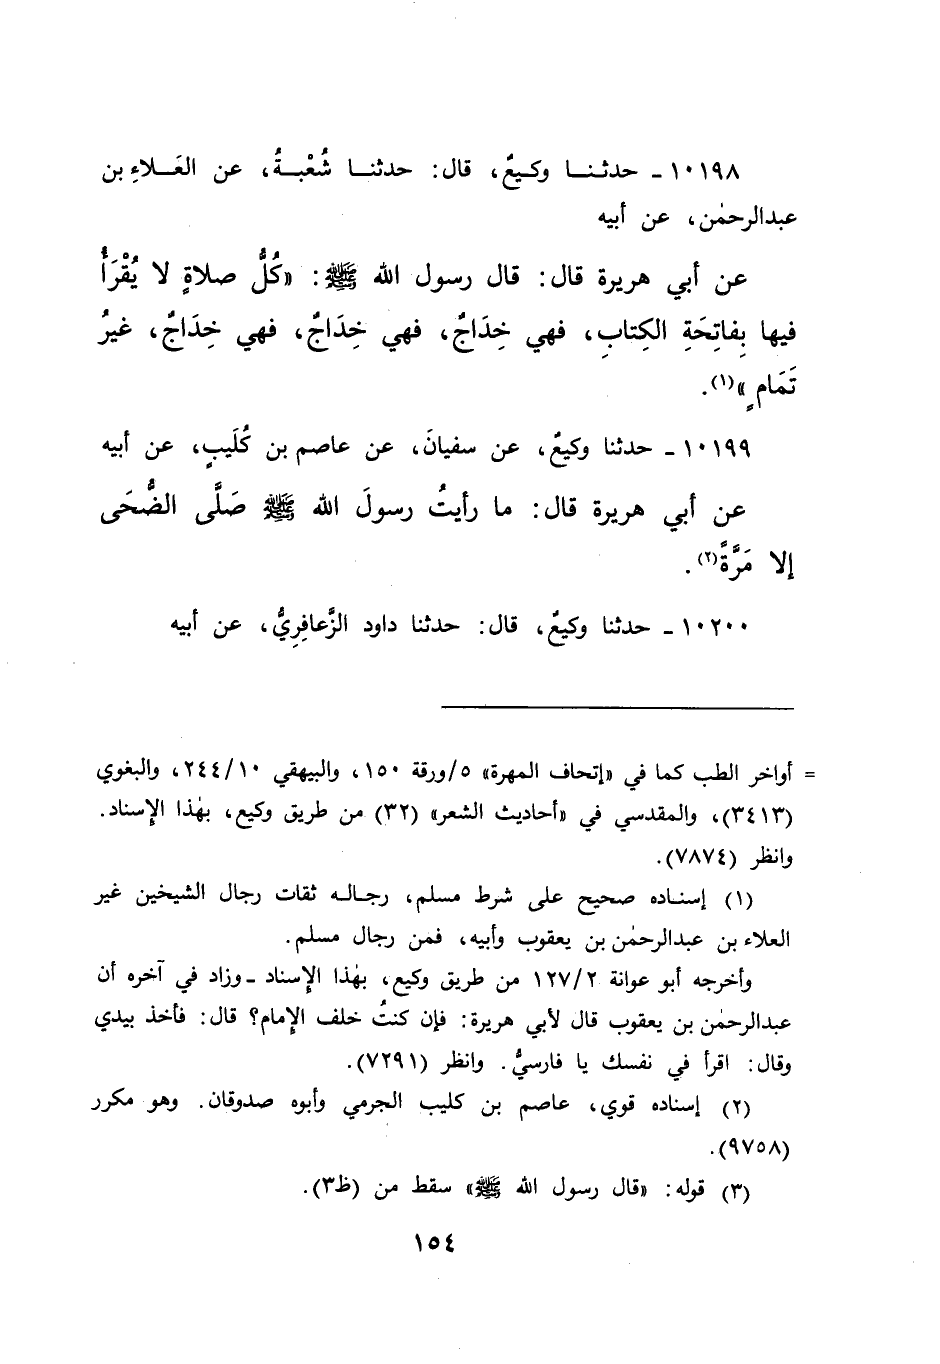 ١٠١٩٨ - حدثنا وكيعٌ، قال: حدثنا شُعْبةُ، عن العَلاءِ بن
عبدالرحمٰن، عن أبيه
عن أبي هريرة قال: قال رسول الله ﷺ: «كُلُّ صلاةٍ لا يُقْرَأُ
فيها بِفاتِحَةِ الكِتابِ، فهي خِدَاجٌ، فهي خِدَاجٌ، فهي خِدَاجٌ، غيرُ
تَمَامٍ»(١).
١٠١٩٩ - حدثنا وكيعٌ، عن سفيانَ، عن عاصم بن كُلَيبٍ، عن أبيه
عن أبي هريرة قال: ما رأيتُ رسولَ الله ﷺ صَلَّى الضُّحَى
إلا مَرَّةً(٢).
١٠٢٠٠ - حدثنا وكيعٌ، قال: حدثنا داود الزَّعافِرِيُّ، عن أبيه
= أواخر الطب كما في «إتحاف المهرة» ٥/ورقة ١٥٠، والبيهقي ٢٤٤/١٠، والبغوي
(٣٤١٣)، والمقدسي في «أحاديث الشعر» (٣٢) من طريق وكيع، بهٰذا الإسناد.
وانظر (٧٨٧٤).
(١) إسناده صحيح على شرط مسلم، رجاله ثقات رجال الشيخين غير
العلاء بن عبدالرحمٰن بن يعقوب وأبيه، فمن رجال مسلم.
وأخرجه أبو عوانة ١٢٧/٢ من طريق وكيع، بهٰذا الإسناد - وزاد في آخره أن
عبدالرحمٰن بن يعقوب قال لأبي هريرة: فإن كنتُ خلف الإمام؟ قال: فأخذ بيدي
وقال: اقرأ في نفسك يا فارسيُّ. وانظر (٧٢٩١).
(٢) إسناده قوي، عاصم بن كليب الجرمي وأبوه صدوقان. وهو مكرر
(٩٧٥٨).
(٣) قوله: «قال رسول الله ﷺ» سقط من (ظ٣).
١٥٤